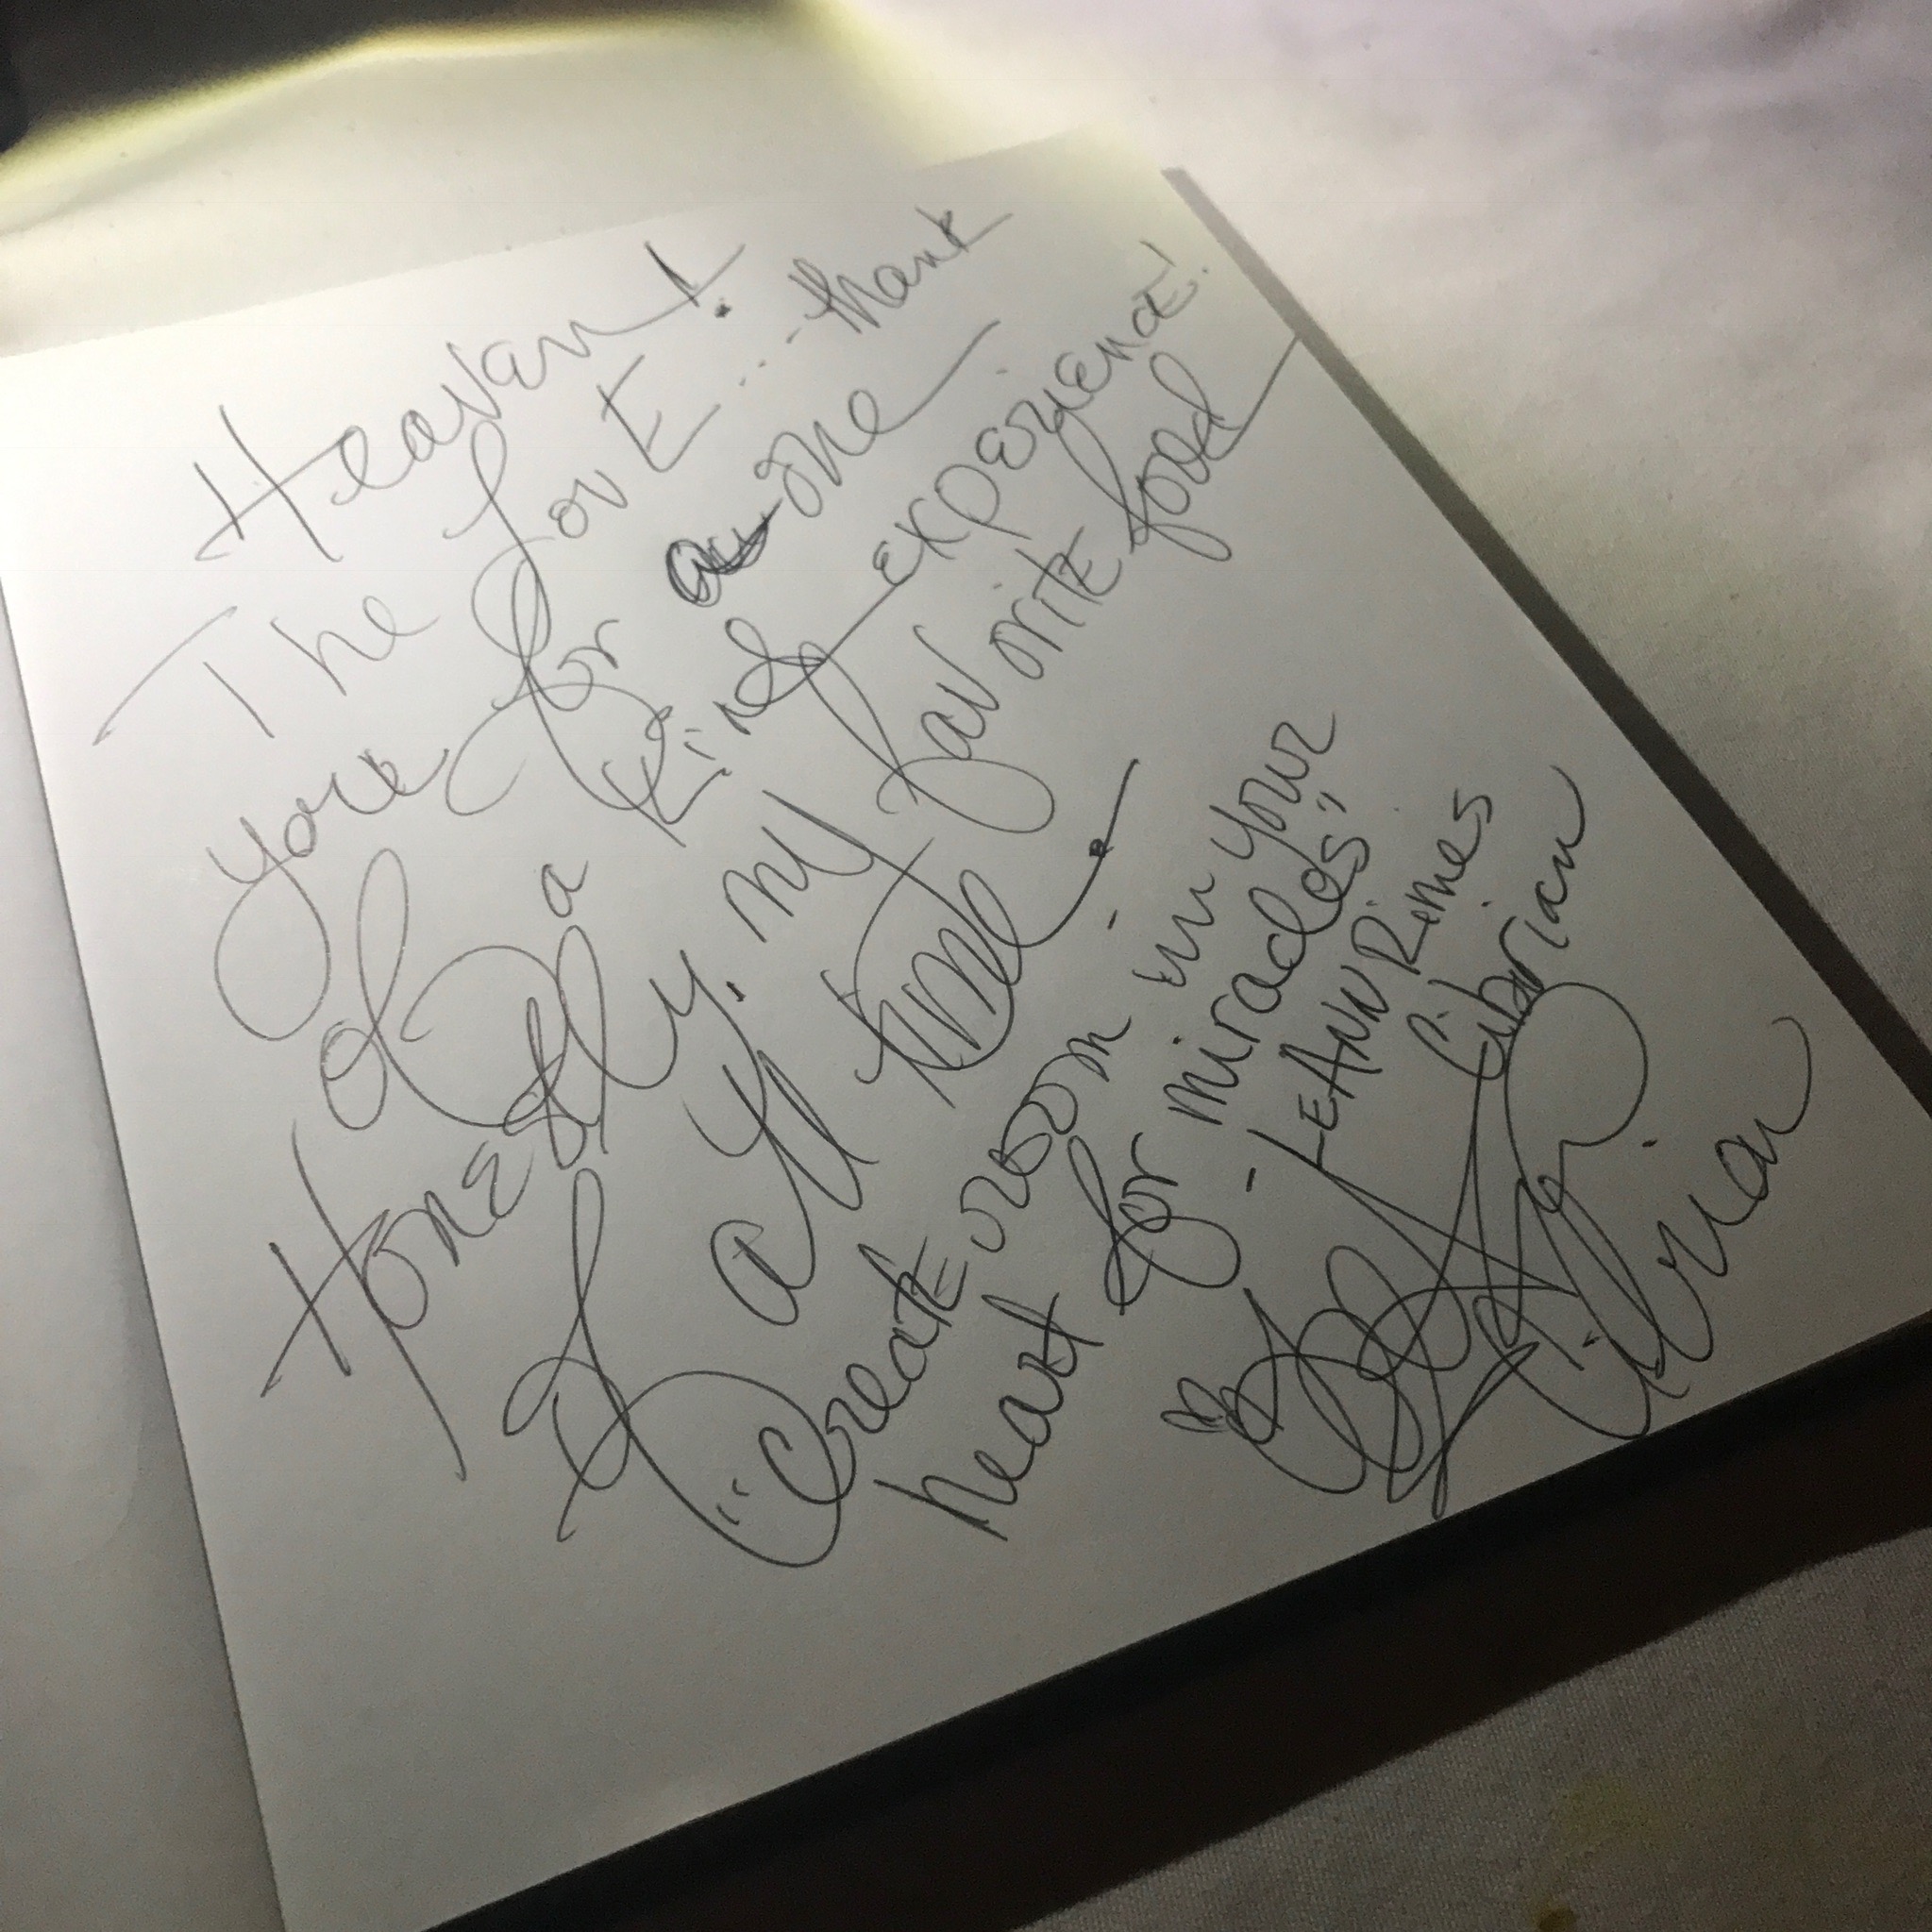 Heaven!
The LovE....thank
you for a one
of a kind experience!
HonEstly. My favorite food
of all time.
"Create room in your
heart for miracles"
- LEANN Rimes
Cibrian
Cibrian